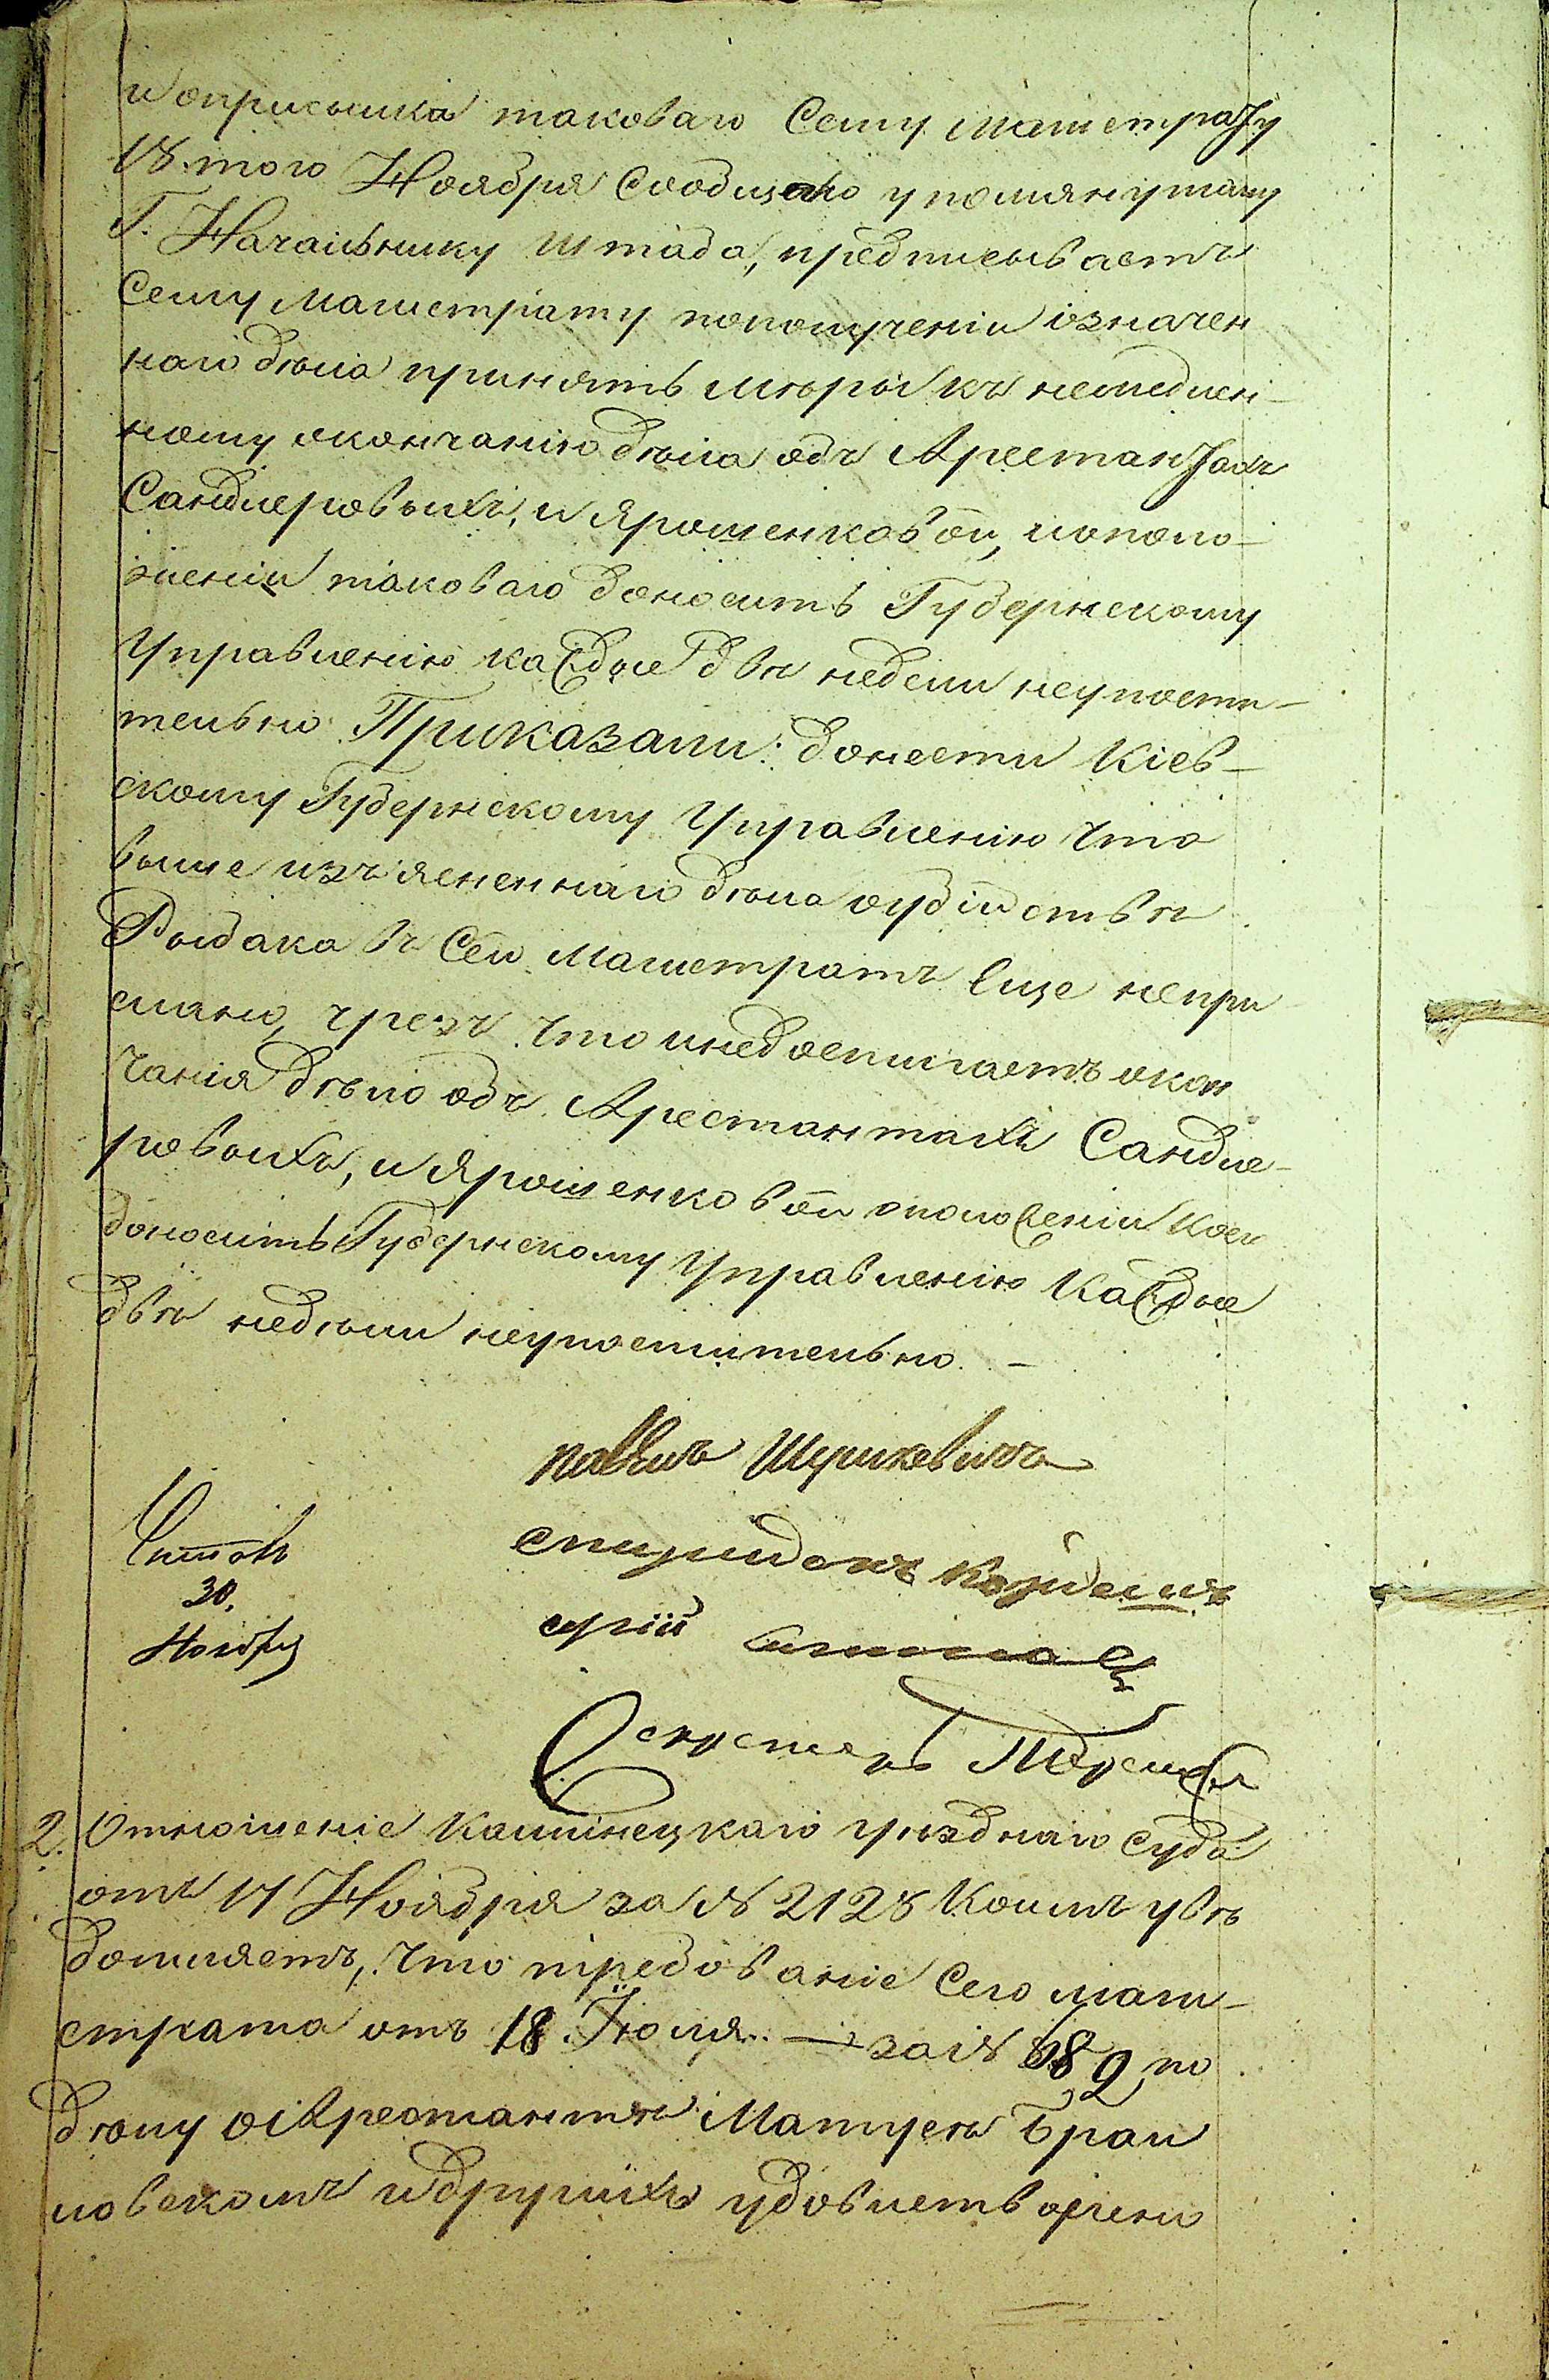 и оприсылкѣ таковаго Сему Магистрату
18. того Ноября Сообщено упомянутому
Г. Начальнику Штаба, предписываетъ
Сему Магистрату пополученіи означен
наго дѣла принять мѣры къ немедлен-
ному окончанію дѣла объ Арестантахъ
Сандлеровыхъ, и Ярошенковой, иополо-
женіи таковаго доносить Губернскому
Управленію каждые двѣ недели неупусти-
тельно Приказали: донести Кіев-
скому Губернскому Управленію что
выше изъясненнаго дѣла оубійствѣ
Рыбака въ Сей Магистратъ Еще непри
слано, чрезъ что инедостигаетъ окон
чанія дѣло объ Арестантахъ Сандле-
ровыхъ, и Ярошенковой оположеніи коего
доносить Губернскому Управленію Каждые
двѣ недѣли неупустительно. -
Павелъ
Спиридонъ
Читалъ
30.
Ноября
Секретарь
2. Отношеніе Каминецкаго уѣзднаго Суда
отъ 17 Ноября за № 2128 Коимъ увѣ
домляетъ, что требованіе Сего маги-
страта отъ 18 Іюля — за № 689 по
дѣлу оАрестантѣ Матуеѣ Бран
ловскомъ идругихъ удовлетворено